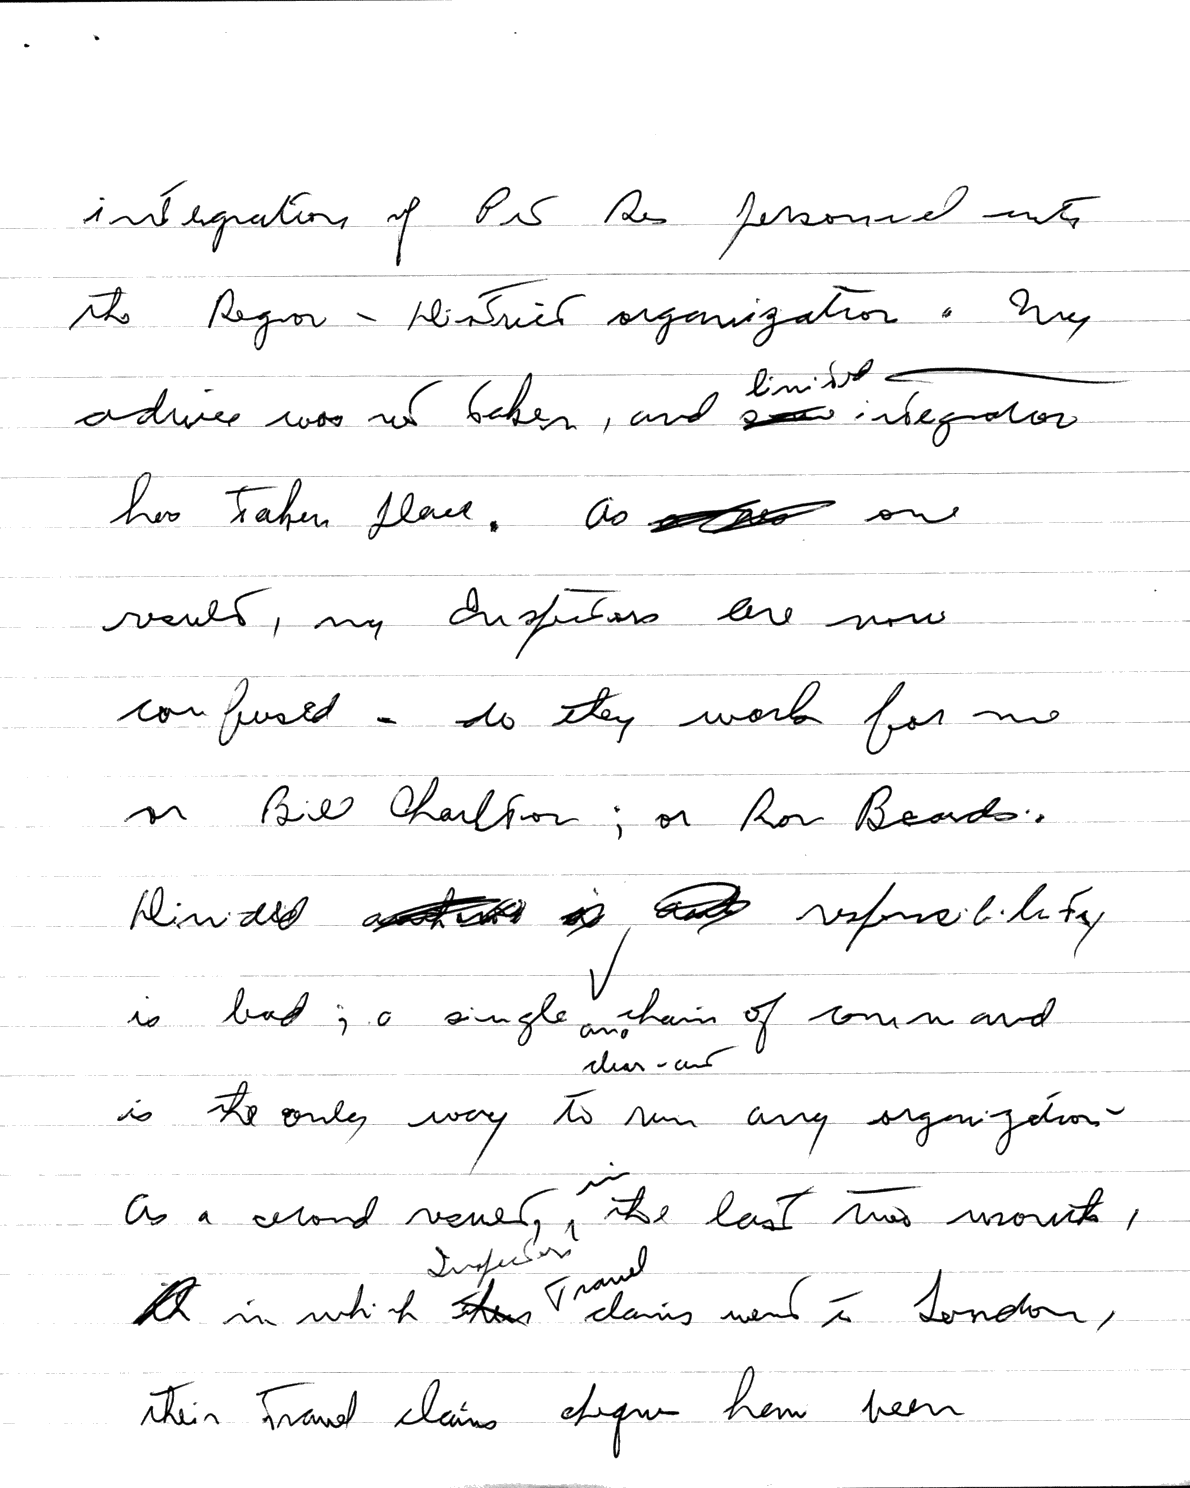 integration of Pet Res personnel into
the Region - District organization. My
advice was not taken, and limited integration
has taken place. As one
result, my Inspectors are now
confused - do they work for me
or Bill Charlton; or Ron Beards.
Divided responsibility
is bad; a single and clear-cut chain of command
is the only way to run any organization
As a second result, in the last two months,
in which Inspectors Travel claims went to London,
their Travel claims cheques have been